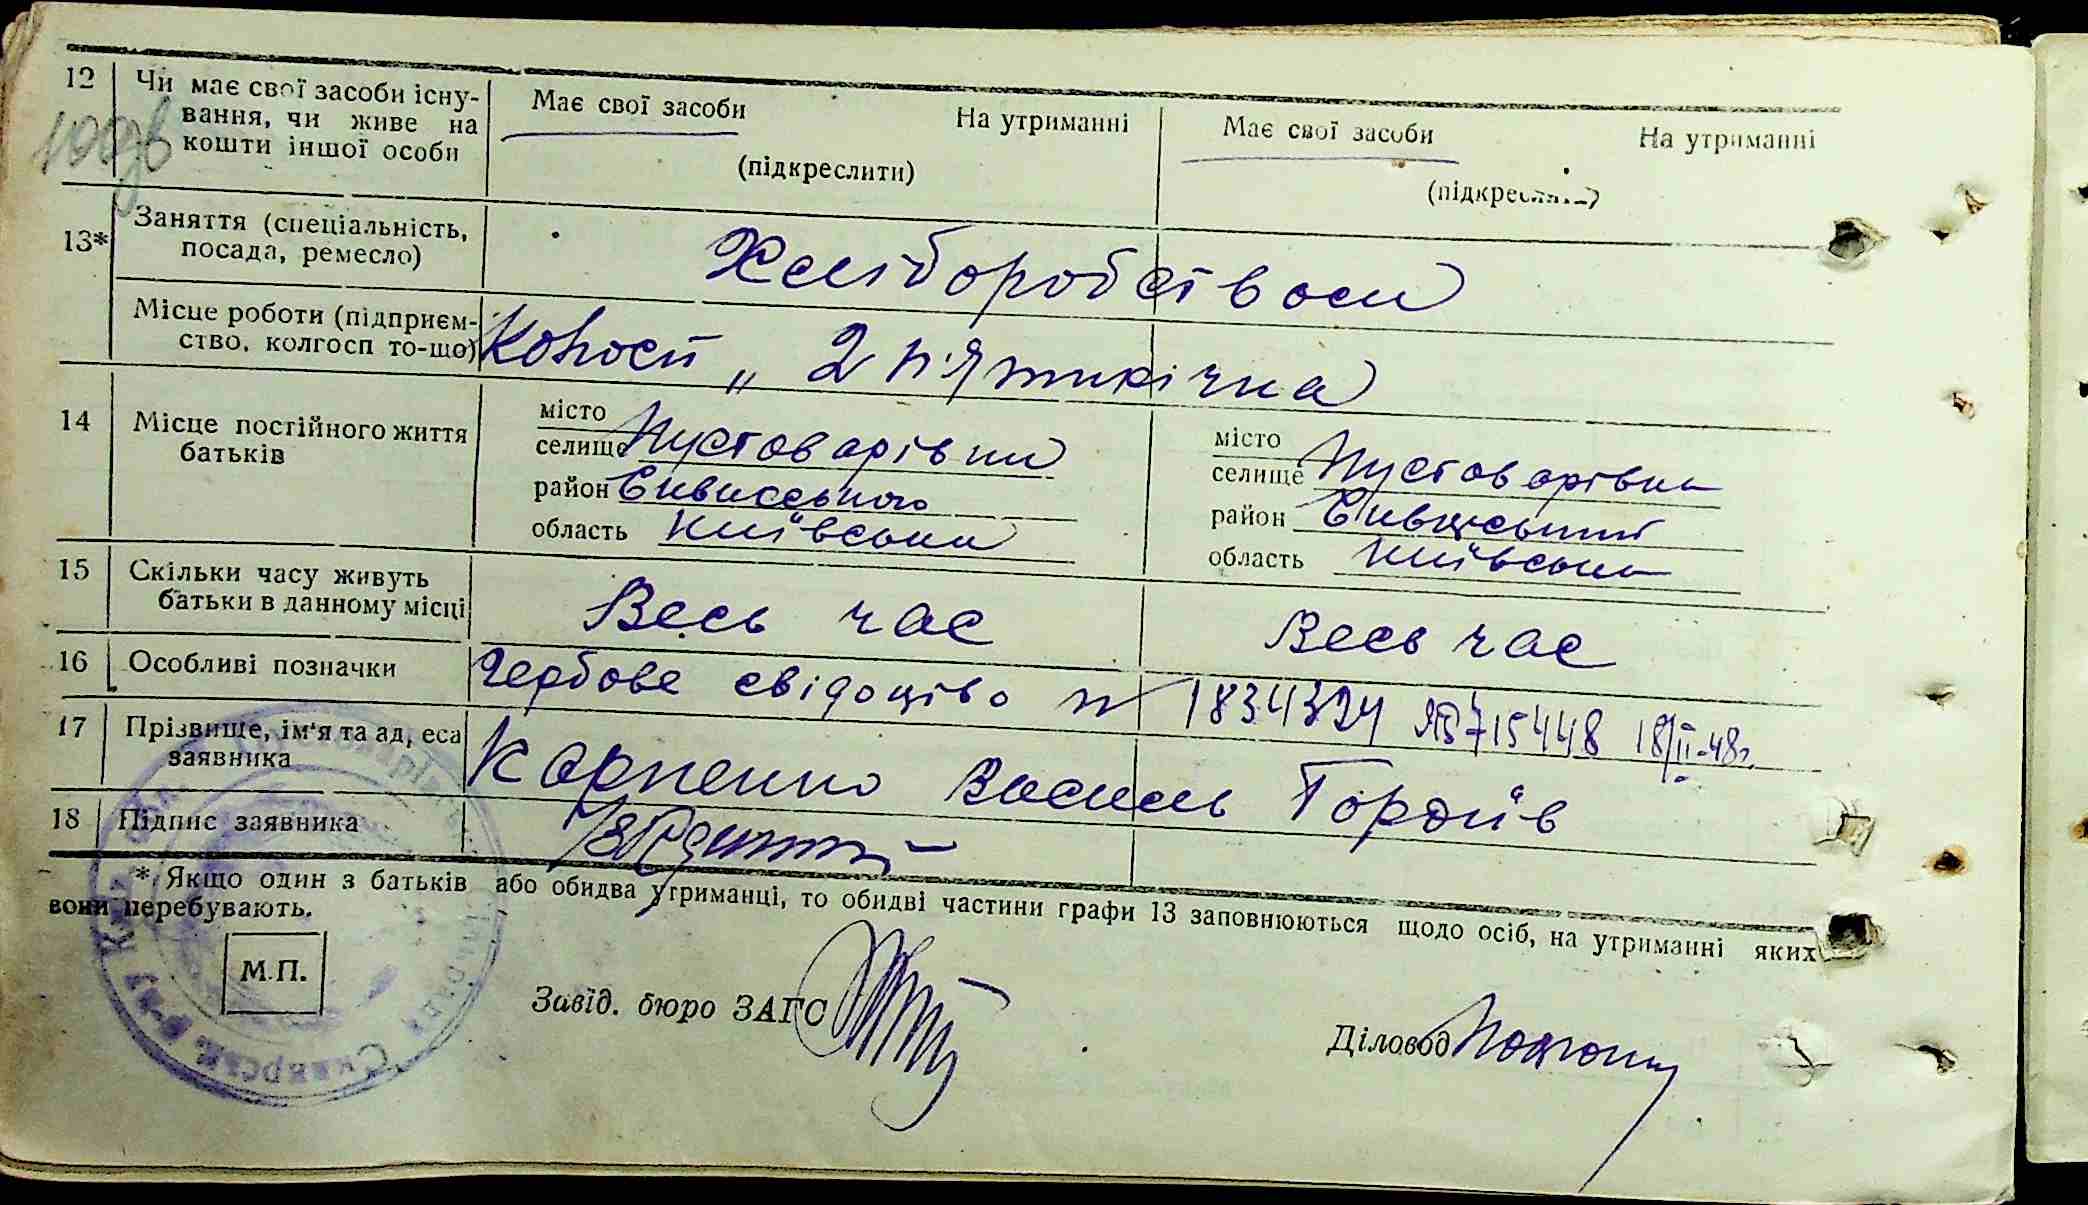 12 Чи має свої засоби існу-
вання, чи живе на
кошти іншої особи
Має свої засоби На утриманні
(підкреслити)
Має свої засоби На утриманні
(підкреслить)
13* Заняття (спеціальність,
посада, ремесло)
Хліборобством
Місце роботи (підприєм-
ство, колгосп то-що)
Колгосп „ 2 п'ятирічка
14 Місце постійного життя
батьків
місто
селище Пустоварівки
район
область Київська
місто
селище Пустоварівка
район
область Київська
15 Скільки часу живуть
батьки в данному місці
Весь час Весь час
16 Особливі позначки
Гербове свідоцтво № 1834324 715448 18/II-48г.
17 Прізвище, ім'я та адреса
заявника
Карпенко Василь Гордіїв
18 Підпис заявника
* Якщо один з батьків або обидва утриманці, то обидві частини графи 13 заповнюються щодо осіб, на утриманні яких
вони перебувають.
М.П.
Завід. бюро ЗАГС
Діловод